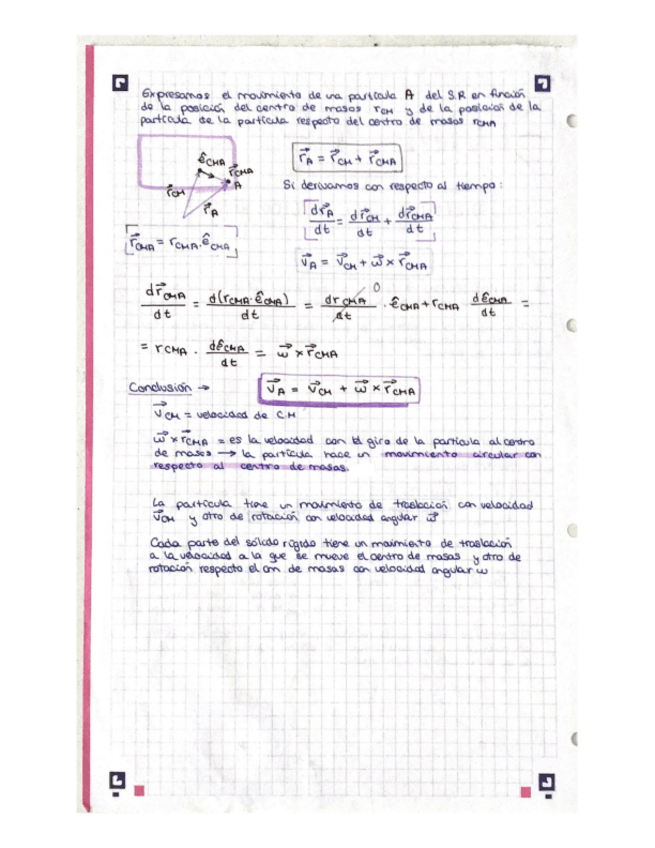 Expresamos el movimiento de una partícula A del S.R en función
de la posición del centro de masas r_CM y de la posición de la
partícula de la partícula respecto del centro de masas r_CMA
ê_CMA
r⃗_CMA
A
r⃗_CM
r⃗_A
r⃗_A = r⃗_CM + r⃗_CMA
Si derivamos con respecto al tiempo:
dr⃗_A/dt = dr⃗_CM/dt + dr⃗_CMA/dt
r⃗_CMA = r_CMA · ê_CMA
v⃗_A = v⃗_CM + ω⃗ × r⃗_CMA
dr⃗_CMA/dt = d(r_CMA · ê_CMA)/dt = dr_CMA/dt 0 · ê_CMA + r_CMA dê_CMA/dt =
= r_CMA · dê_CMA/dt = ω⃗ × r⃗_CMA
Conclusión → v⃗_A = v⃗_CM + ω⃗ × r⃗_CMA
v⃗_CM = velocidad de C.M
ω⃗ × r⃗_CMA = es la velocidad con el giro de la partícula al centro
de masas → la partícula hace un movimiento circular con
respecto al centro de masas.
La partícula tiene un movimiento de traslación con velocidad
v⃗_CM y otro de rotación con velocidad angular ω⃗
Cada parte del sólido rígido tiene un movimiento de traslación
a la velocidad a la que se mueve el centro de masas y otro de
rotación respecto el cm de masas con velocidad angular ω